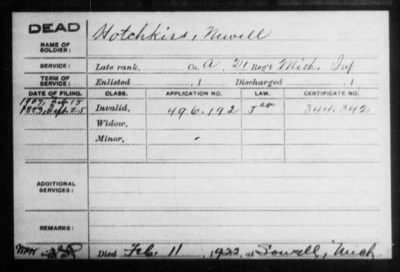 DEAD
NAME OF SOLDIER: Hotchkiss, Newell
SERVICE: Late rank, Co. A, 21 Reg't Mich. Inf
TERM OF SERVICE: Enlisted , 1 Discharged , 1
DATE OF FILING. CLASS. APPLICATION NO. LAW. CERTIFICATE NO.
Invalid, 496.192 344.342
Widow,
Minor, "
ADDITIONAL SERVICES:
REMARKS:
Died Feb. 11, 1922, at Lowell, Mich